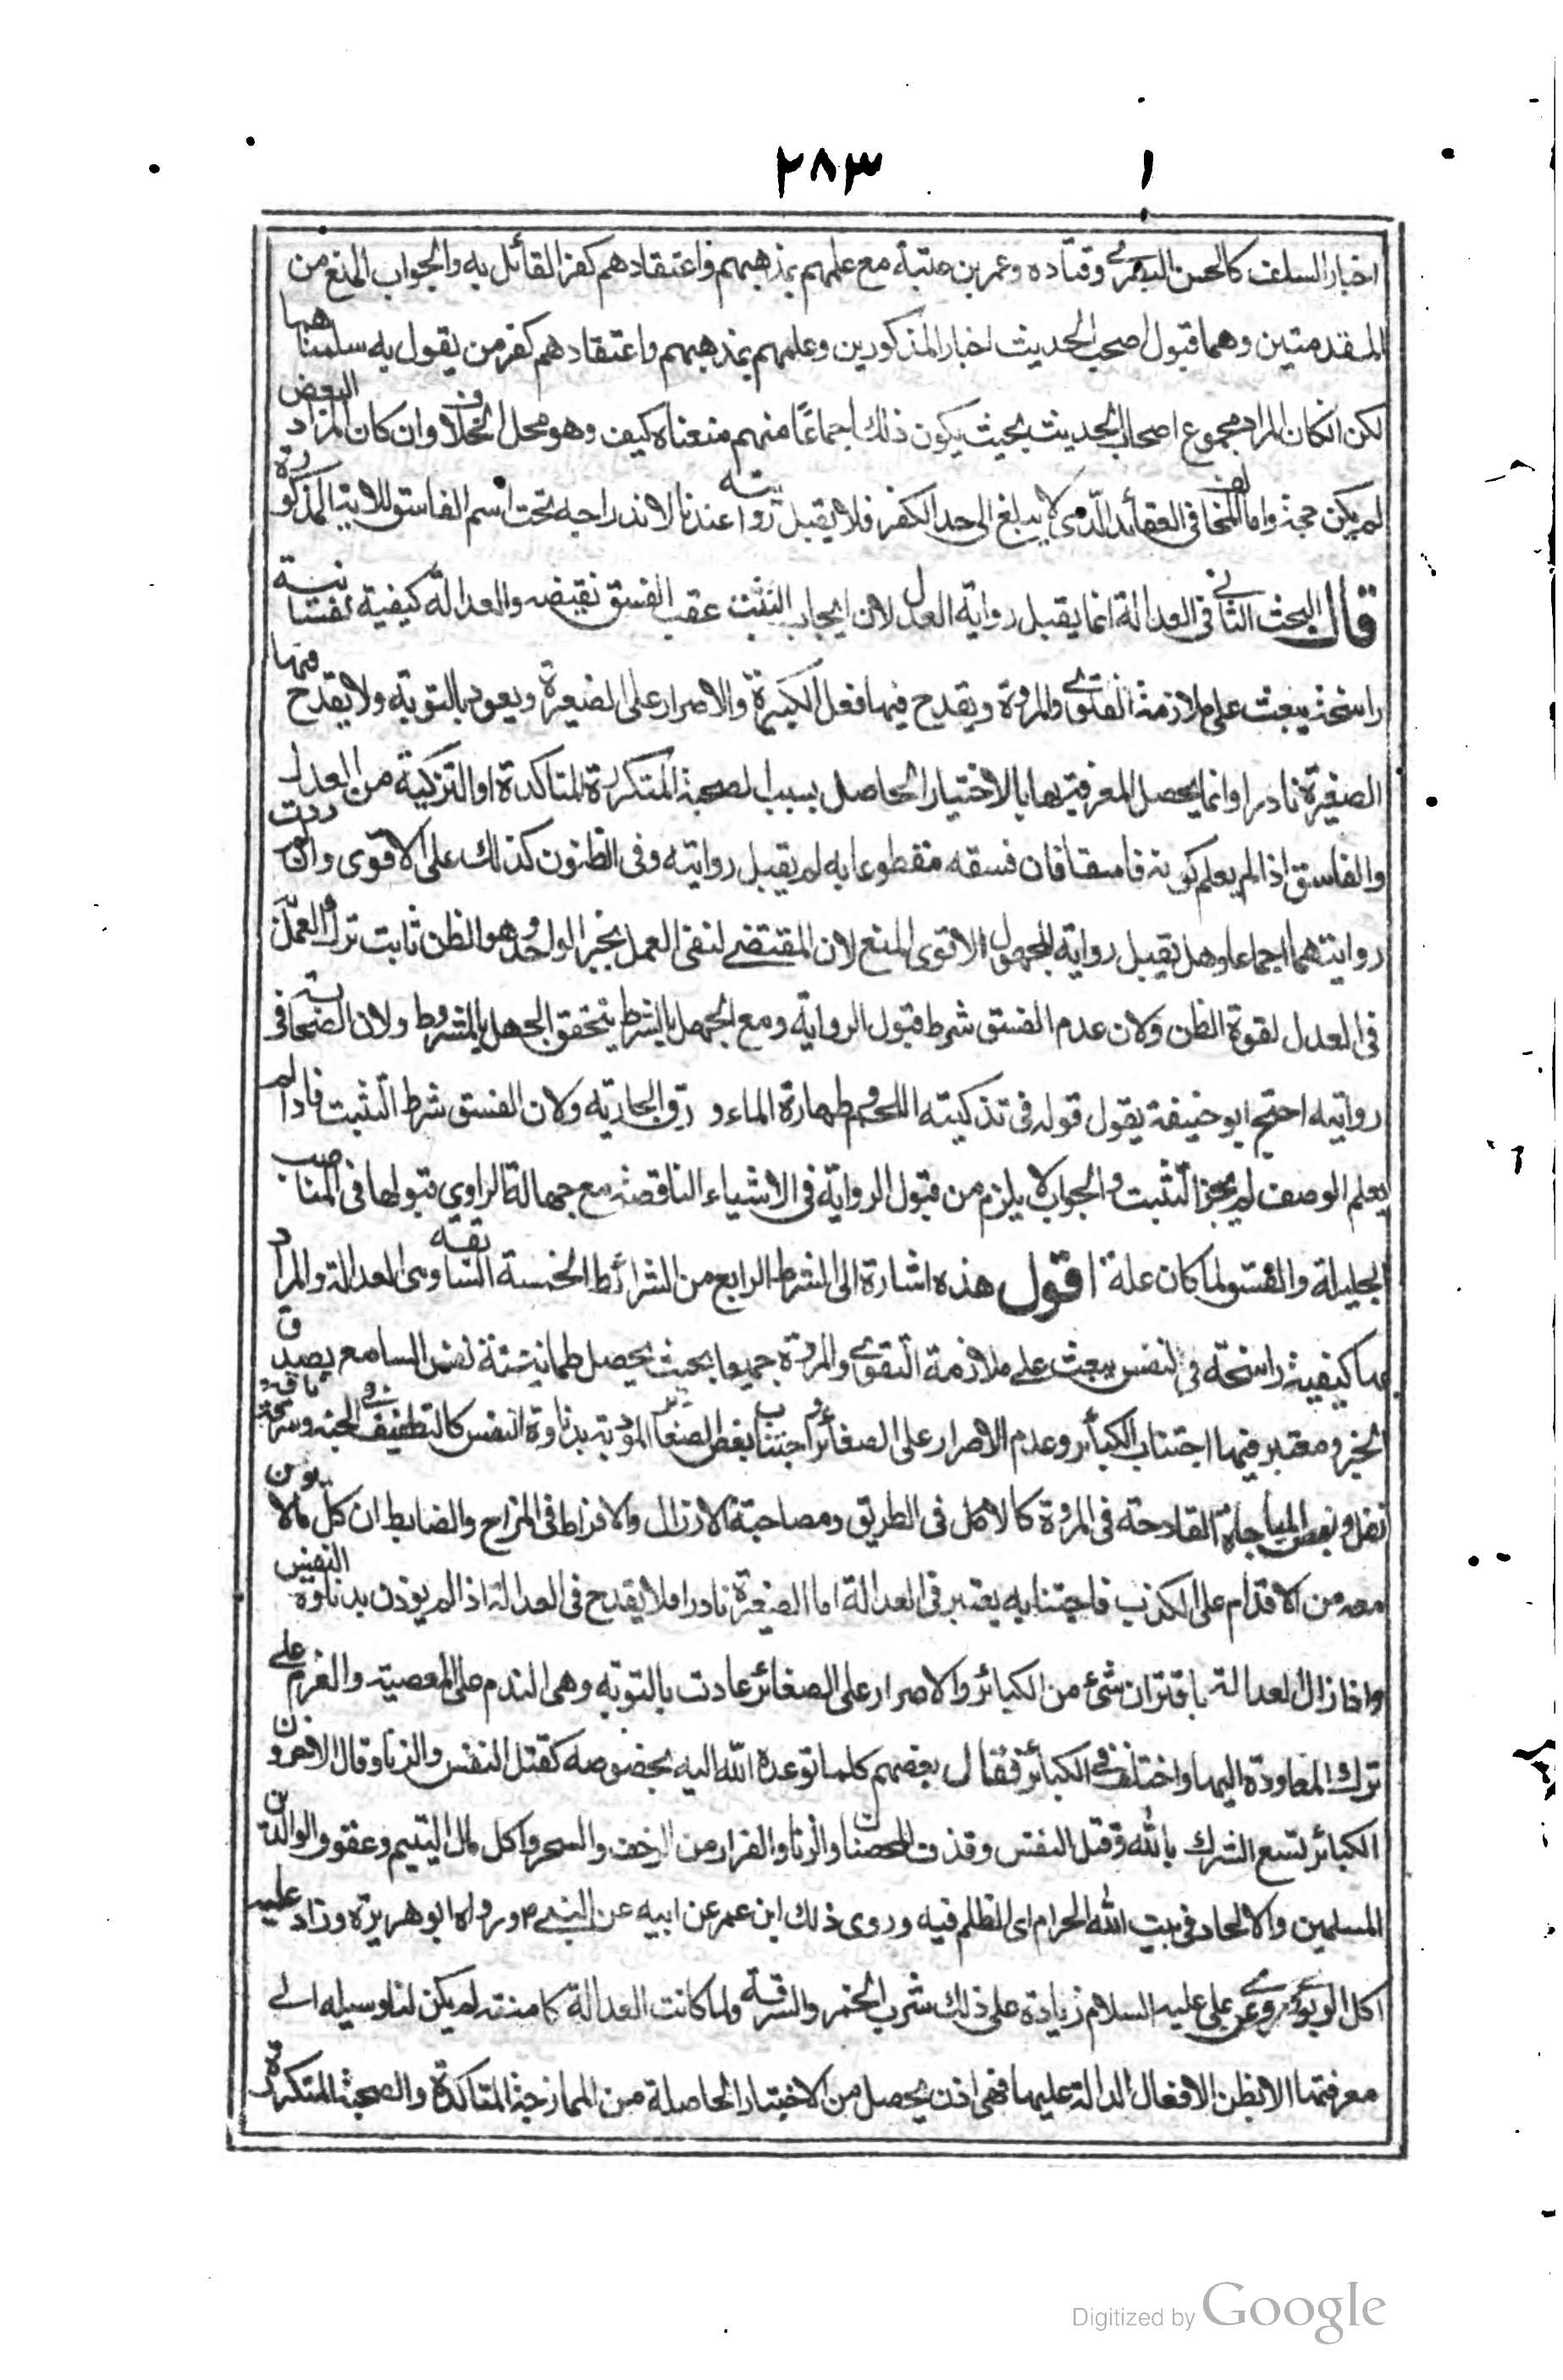 ٢٨٣
اخبار السلف كالحسن البصرى وقتاده وعمر بن عتبة مع علمهم بمذهبهم واعتقادهم كفر القائل به والجواب المنع من
المقدمتين وهما قبول اصحب الحديث اخبار المذكورين وعلمهم بمذهبهم واعتقادهم كفر من يقول به سلمناهما
لكن ان كان المراد مجموع اصحاب الحديث بحيث يكون ذلك اجماعًا منهم منعناه كيف وهو محل الخلاف وان كان المراد البعض
لم يكن حجة واما المخالف فى العقائد الذى لا يبلغ الى حد الكفر فلا يقبل روايته عندنا لاندراجه تحت اسم الفاسق للاية المذكورة
قال البحث الثانى فى العدالة انما يقبل رواية العدل لان ايجاب التثبت عقب الفسق نقيضه والعدالة كيفية نفسانية
راسخة يبعث على ملازمة التقوى والمروة ويقدح فيها فعل الكبيرة والاصرار على الصغيرة ويعود بالتوبة ولا يقدح فيها
الصغيرة نادرا وانما يحصل المعرفة بها بالاختبار الحاصل بسبب الصحبة المتكررة المتاكدة او التزكية من العدل
والفاسق اذا لم يعلم كونه فاسقا فان فسقه مقطوعا به لم يقبل روايته وفى الظنون كذلك على الاقوى وان ردت
روايتهما اجماعا وهل يقبل رواية المجهول الاقوى المنع لان المقتضى لنفى العمل بخبر الواحد وهو الظن ثابت ترك العمل
فى العدل لقوة الظن ولان عدم الفسق شرط قبول الرواية ومع الجهل بالشرط يتحقق الجهل بالمشروط ولان الصحابة
روايته احتج ابو حنيفة يقول قوله فى تذكيته اللحم وطهارة الماء و رق الجارية ولان الفسق شرط التثبت فاذا لم
يعلم الوصف لم يجز التثبت والجواب لا يلزم من قبول الرواية فى الاشياء الناقصة مع جهالة الراوي قبولها فى المناصب
الجليلة والفسق لما كان علة اقول هذه اشارة الى الشرط الرابع من الشرائط الخمسة السابقة وهى العدالة والمراد
بها كيفية راسخة فى النفس يبعث على ملازمة التقوى والمروة جميعا بحيث يحصل طمانينة نفس السامع بصدق
الخبر ومعتبر فيها اجتناب الكبائر وعدم الاصرار على الصغائر اجتناب بعض الصغائر المؤدية بدناوة النفس كالتطفيف فى الحبة وسرقة باقة
بقل وبعض المباحات القادحة فى المروة كالاكل فى الطريق ومصاحبة الارذال والافراط فى المزاح والضابط ان كل ما لا يؤمن
معه من الاقدام على الكذب فاجتنابه يعتبر فى العدالة اما الصغيرة نادرا فلا يقدح فى العدالة اذا لم يؤذن بدناوة النفس
واذا زال العدالة باقتران شئ من الكبائر والاصرار على الصغائر عادت بالتوبه وهى الندم على المعصية والعزم على
ترك المعاودة اليها واختلف فى الكبائر فقال بعضهم كلما توعده الله اليه بخصوصه كقتل النفس والزنا وقال الاخرون
الكبائر تسع الشرك بالله وقتل النفس وقذف المحصنات والزنا والفرار من الزحف والسحر واكل مال اليتيم وعقوق الوالدين
المسلمين والالحاد فى بيت الله الحرام اى الظلم فيه وروى ذلك ابن عمر عن ابيه عن النبى ص ورواه ابو هريرة وزاد عليه
اكل الربو وروى عن على عليه السلام زيادة على ذلك شرب الخمر والسرقة ولما كانت العدالة كامنة لم يكن لنا وسيله الى
معرفتها الا بظن الافعال الدالة عليها فهى اذن يحصل من الاختبار الحاصلة من الممازجة المتاكدة والصحبة المتكررة
Digitized by Google